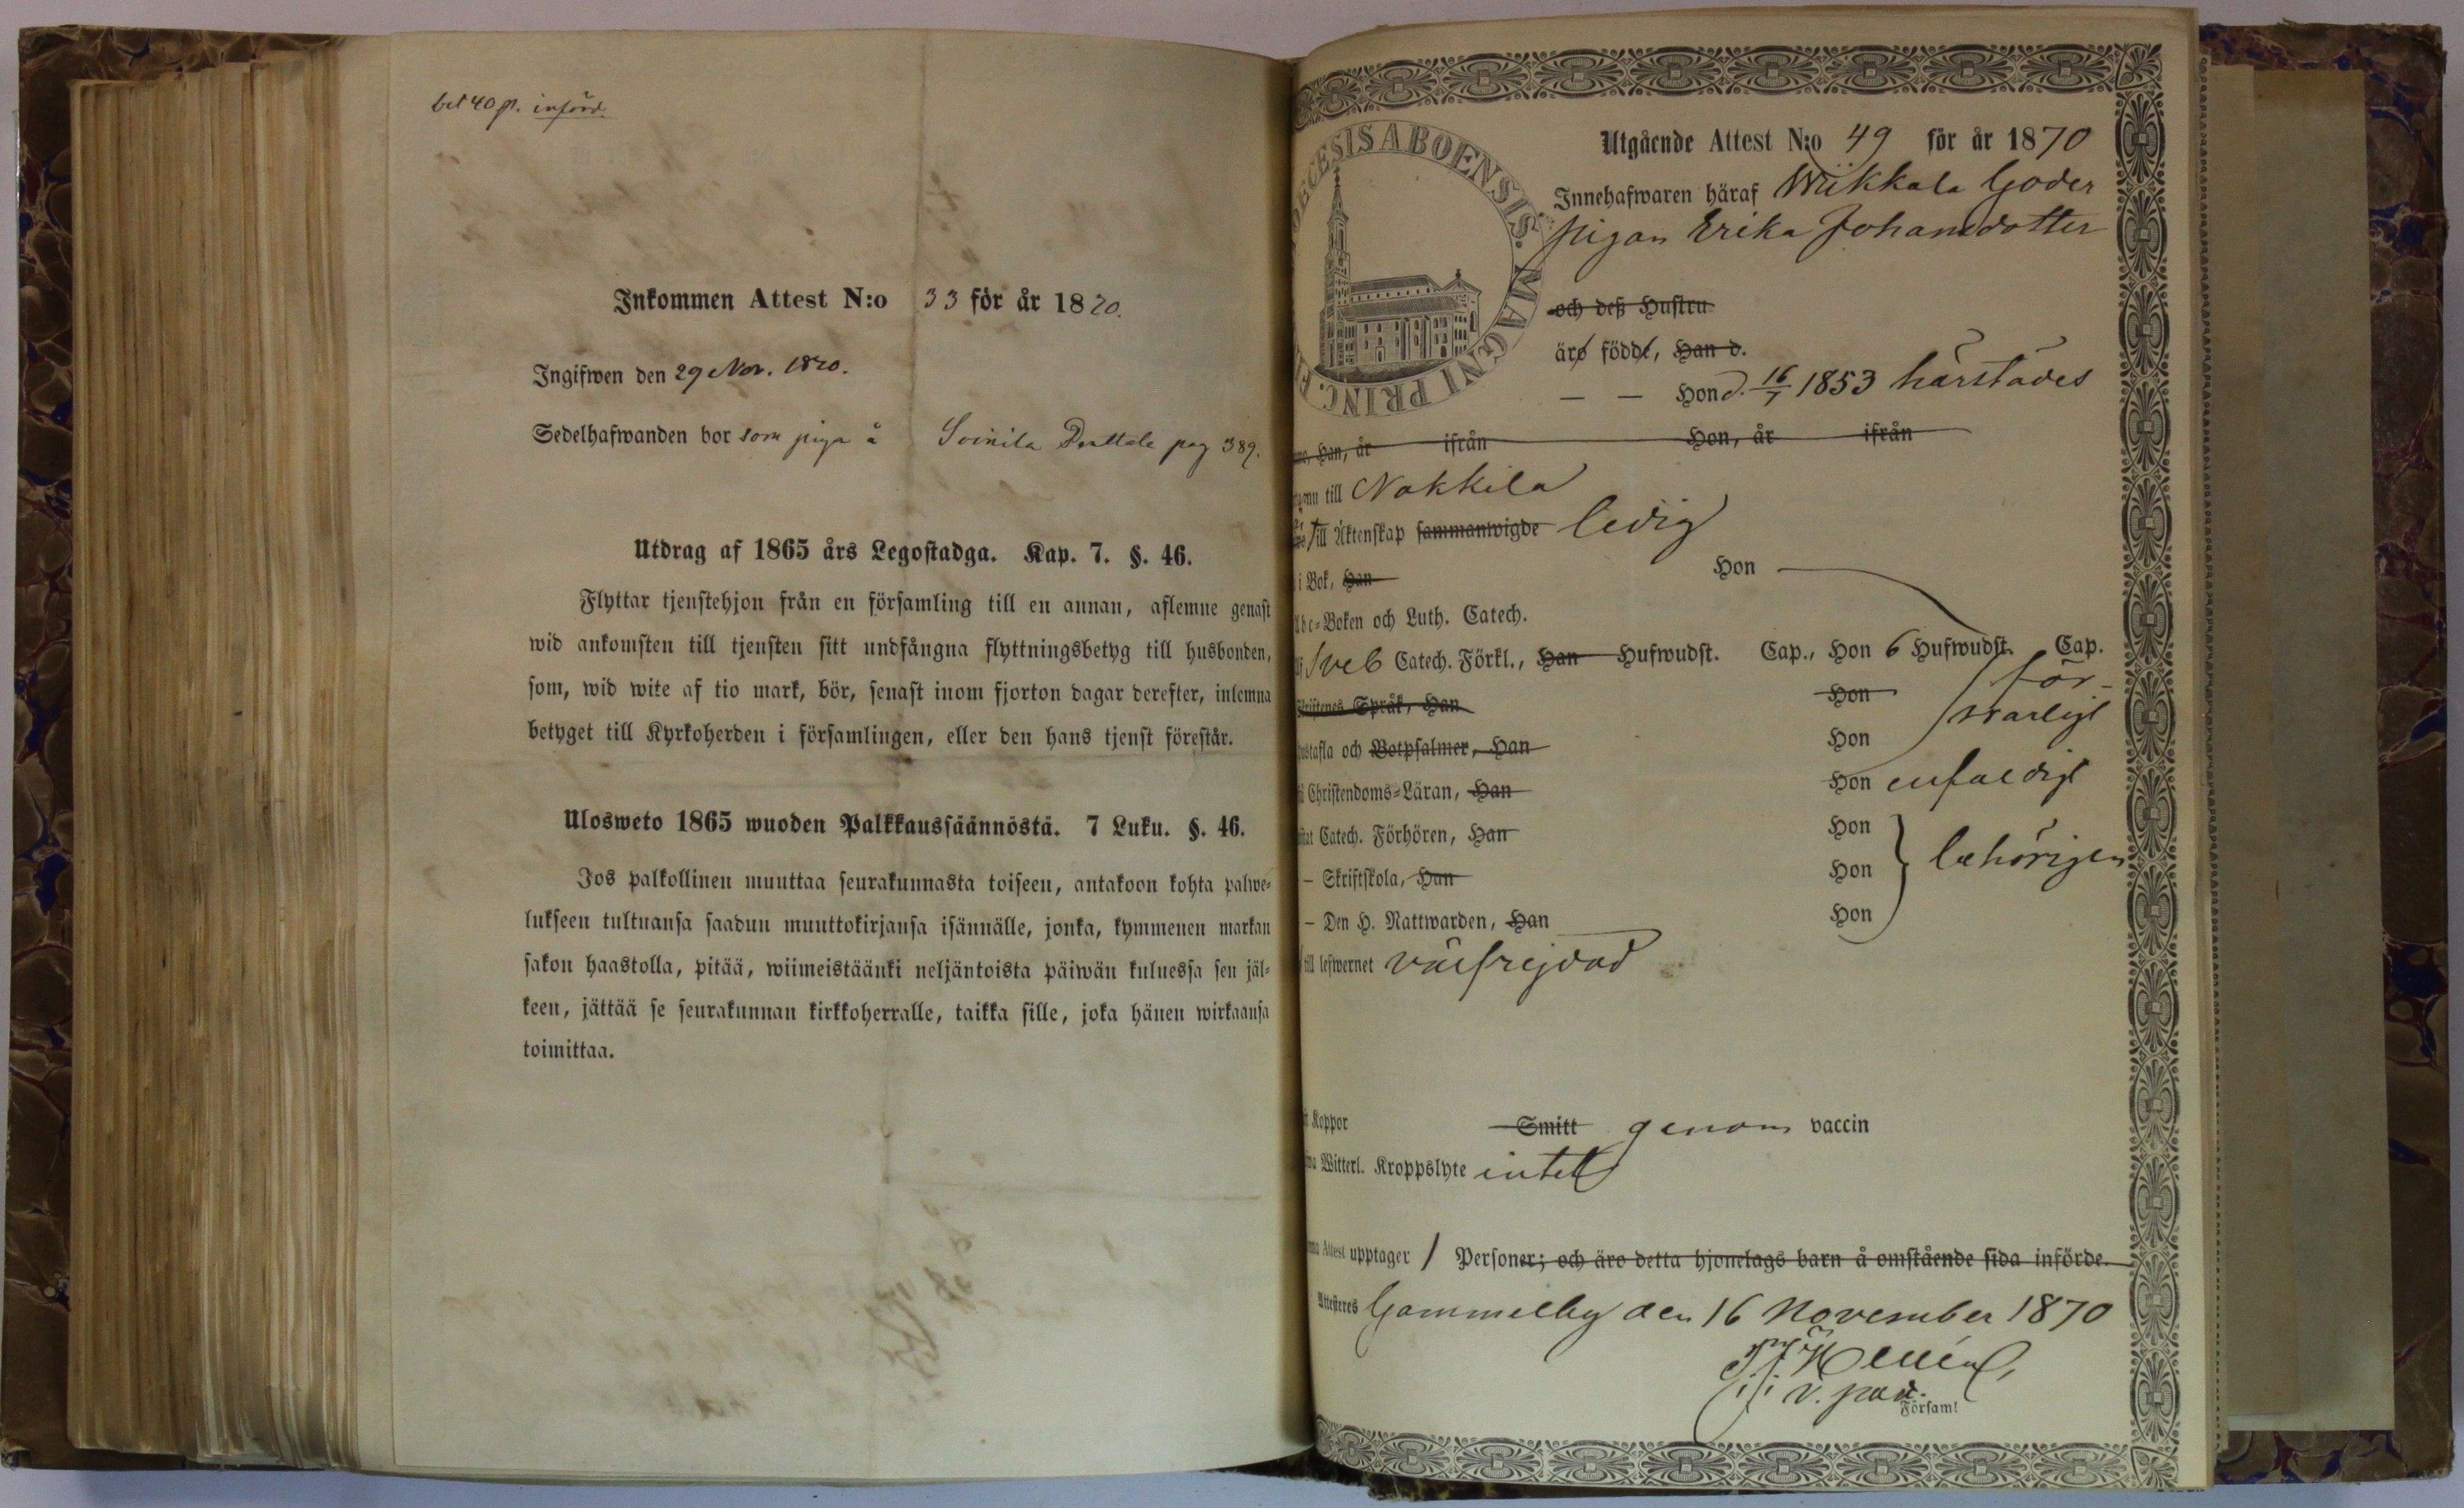 bet 40 p. införd.
Inkommen Attest N:o 33 för år 1870.
Ingifwen den 29 Nov. 1870.
Sedelhafwanden bor som piga å Soinila Penttala pag 389.
Utdrag af 1865 års Legostadga. Kap. 7. §. 46.
Flyttar tjenstehjon från en församling till en annan, aflemne genast
wid ankomsten till tjensten sitt undfångna flyttningsbetyg till husbonden,
som, wid wite af tio mark, bör, senast inom fjorton dagar derefter, inlemna
betyget till Kyrkoherden i församlingen, eller den hans tjenst förestår.
Ulosweto 1865 wuoden Palkkaussäännöstä. 7 Luku. §. 46.
Jos palkollinen muuttaa seurakunnasta toiseen, antakoon kohta palwe-
lukseen tultuansa saadun muuttokirjansa isännälle, jonka, kymmenen markan
sakon haastolla, pitää, wiimeistäänki neljäntoista päiwän kuluessa sen jäl-
keen, jättää se seurakunnan kirkkoherralle, taikka sille, joka hänen wirkaansa
toimittaa.
ECESIS ABOENSIS. MAGNI PRINC. F
Utgående Attest N:o 49 för år 1870
Innehafwaren häraf Wiikkala Goder
pigan Erika Johansdotter
och deß Hustru
äro födde, Han d.
— — Hon d. 16/7 1853 härstädes
Han, år ifrån Hon, år ifrån
till Nakkila
till Äktenskap sammanwigde ledig
i Bok, Han Hon
Abc-Boken och Luth. Catech.
Sveb Catech. Förkl., Han Hufwudst. Cap., Hon 6 Hufwudst. Cap.
Skriftenes Språk, Han Hon för-
svarligt
Hustafla och Botpsalmer, Han Hon
Christendoms-Läran, Han Hon enfaldigt
Catech. Förhören, Han Hon
— Skriftskola, Han Hon behörigen
— Den H. Nattwarden, Han Hon
till lefwernet välfrejdad
Koppor Smitt genom vaccin
Witterl. Kroppslyte intet
Attest upptager 1 Personer; och äro detta hjonelags barn å omstående sida införde.
Attesteres Gammelby den 16 November 1870
v. past.
Församl